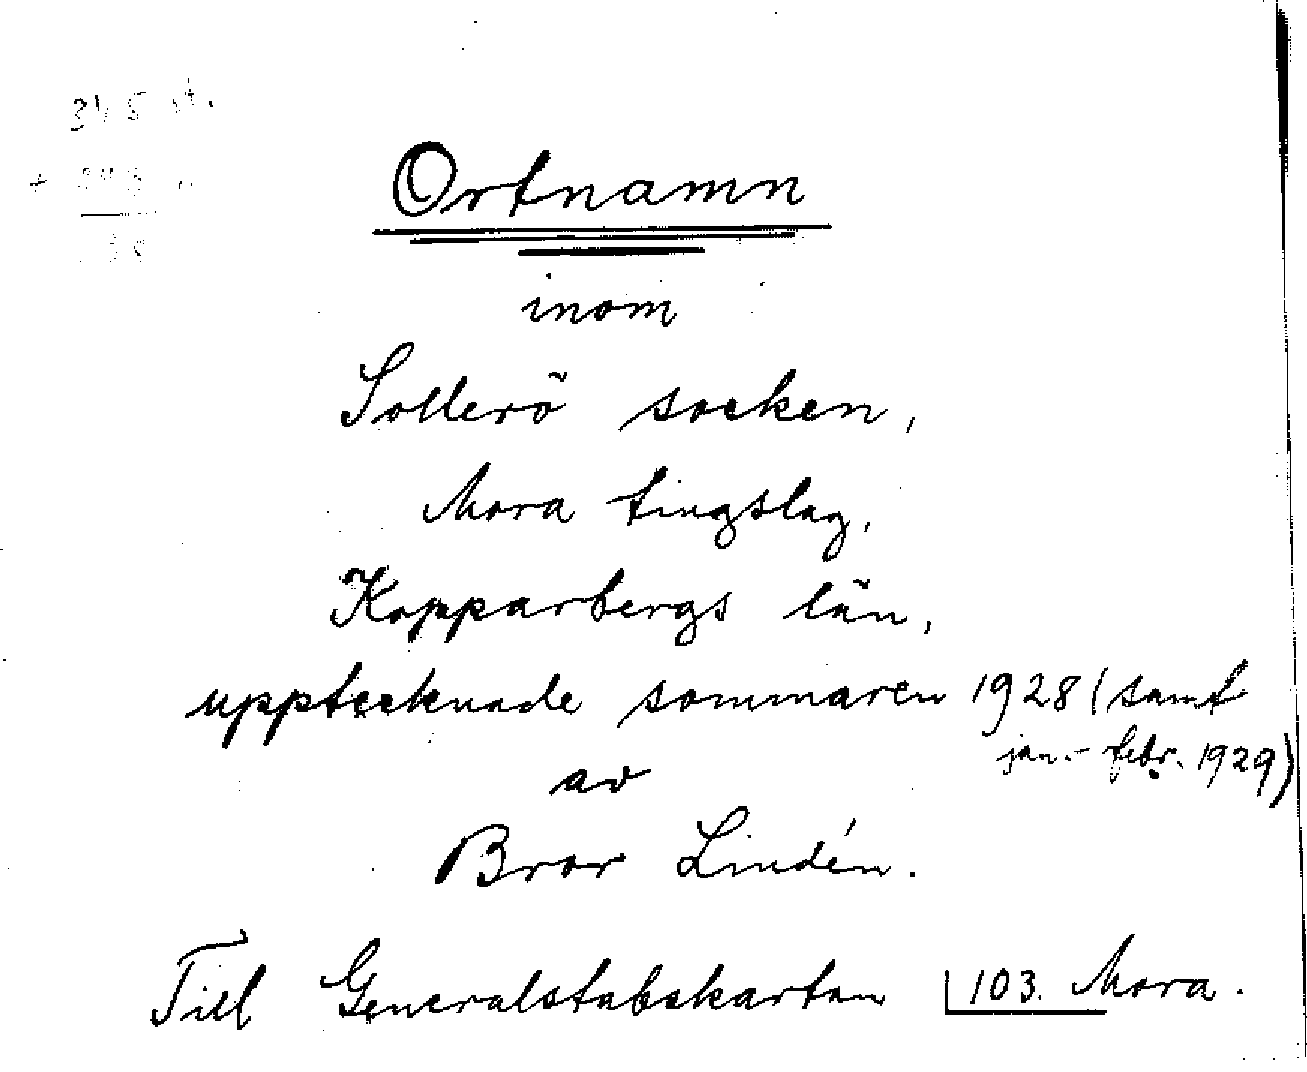 Ortnamn
inom
Sollerö socken,
Mora tingslag,
Kopparbergs län,
upptecknade sommaren 1928 (samt
jan.- febr. 1929)
av
Bror Lindén.
Till Generalstabskartan 103. Mora.